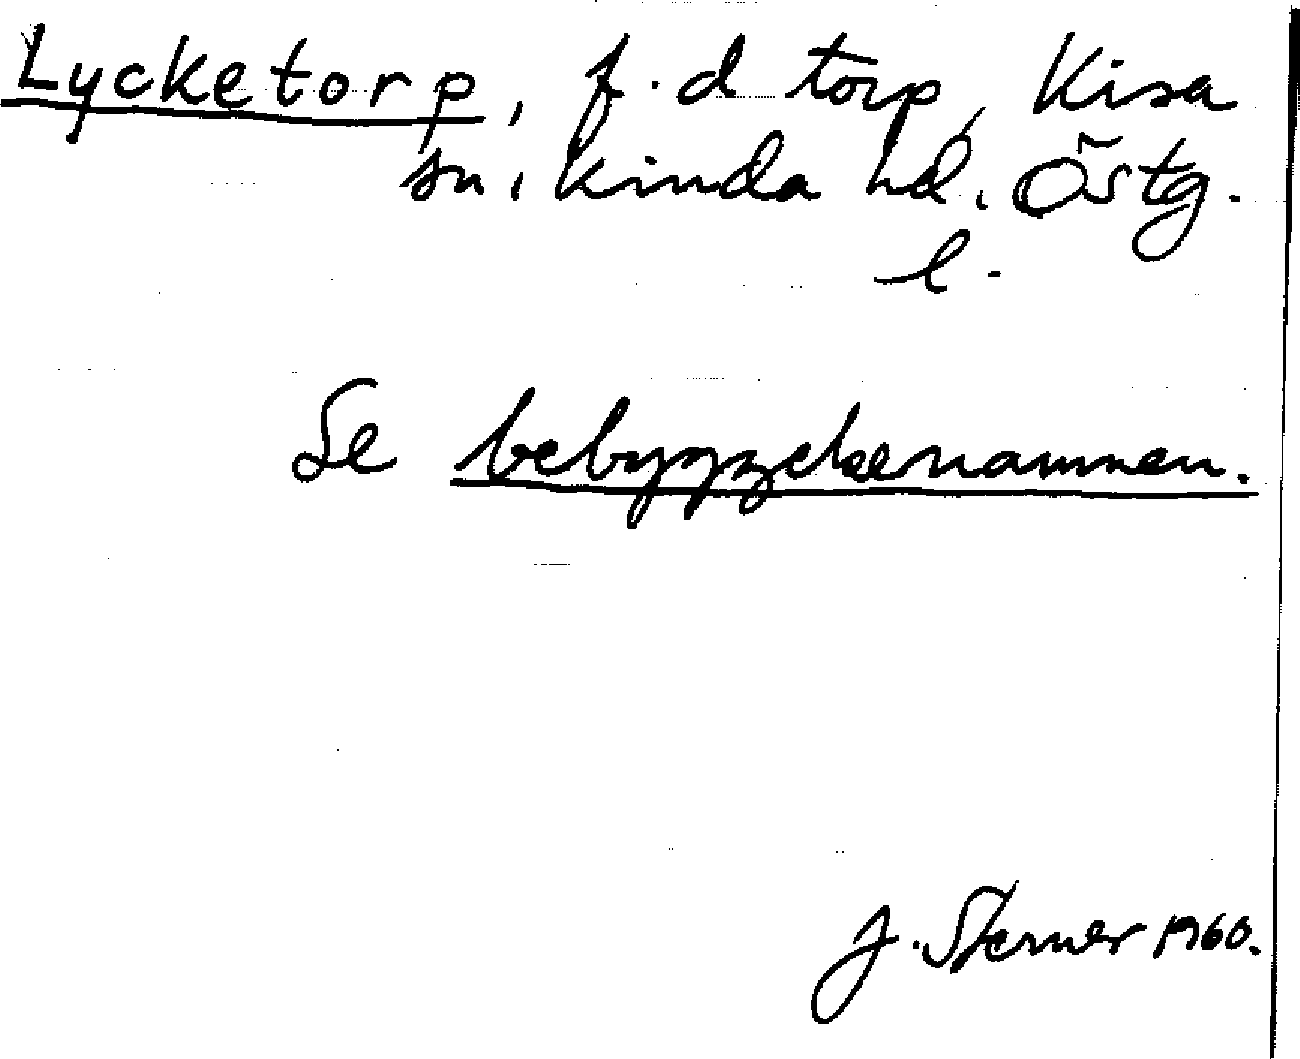 Lycketorp, f.d torp, Kisa
sn, Kinda hd, Östg.
l.
Se bebyggelsenamnen.
J. Sterner 1960.